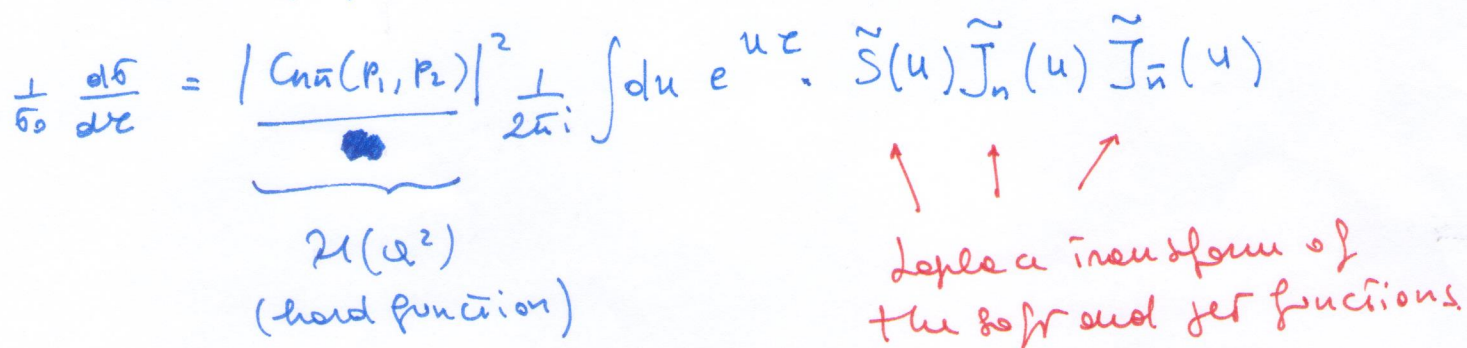 1/σ₀ dσ/dτ = |C_{nn̄}(p₁, p₂)|² 1/2πi ∫du e^{uτ} · S̃(u) J̃_n(u) J̃_n̄(u)
H(Q²)
(hard function)
Laplace transform of
the soft and jet functions